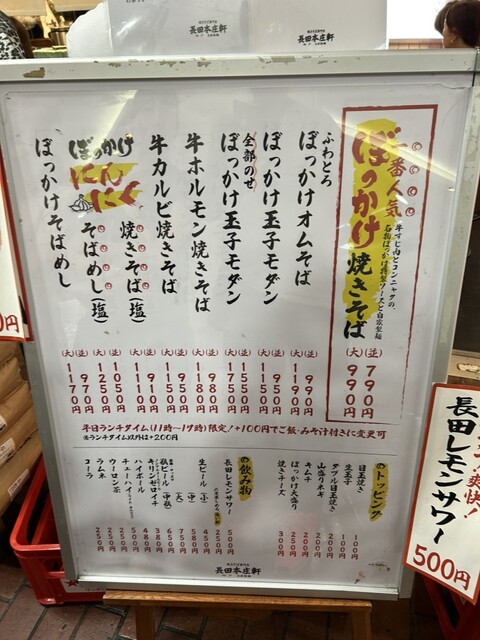 長田本庄軒
長田本庄軒
一番人気
ぼっかけ焼きそば
牛すじ肉とコンニャクの、
名物ぼっかけ特製ソースと自家製麺
(並) 790円
(大) 990円
ふわとろ
ぼっかけオムそば
(並) 990円
(大) 1190円
ぼっかけ玉子モダン
(並) 950円
(大) 1150円
全部のせ
ぼっかけ玉子モダン
牛ホルモン焼きそば
(並) 980円
(大) 1180円
牛カルビ焼きそば
(並) 950円
(大) 1150円
ぼっかけ
にんにく
焼きそば(塩)
(並) 910円
(大) 1110円
そばめし(塩)
(並) 1050円
(大) 1250円
ぼっかけそばめし
(並) 970円
(大) 1170円
平日ランチタイム(11時〜17時)限定!+100円でご飯・みそ汁付きに変更可
※ランチタイム以外は+200円
トッピング
目玉焼き 100円
生玉子 100円
ダブル目玉焼き 200円
山盛りネギ 200円
キムチ 200円
ぼっかけ大盛り
焼きチーズ 300円
飲み物
長田レモンサワー 500円
生ビール (小)
(中)
(大)
瓶ビール(中瓶)
キリンゼロイチ
ハイボール
チューハイ
ウーロン茶 250円
ラムネ 250円
コーラ 250円
長田本庄軒
爽快!
長田レモンサワー
500円
00円